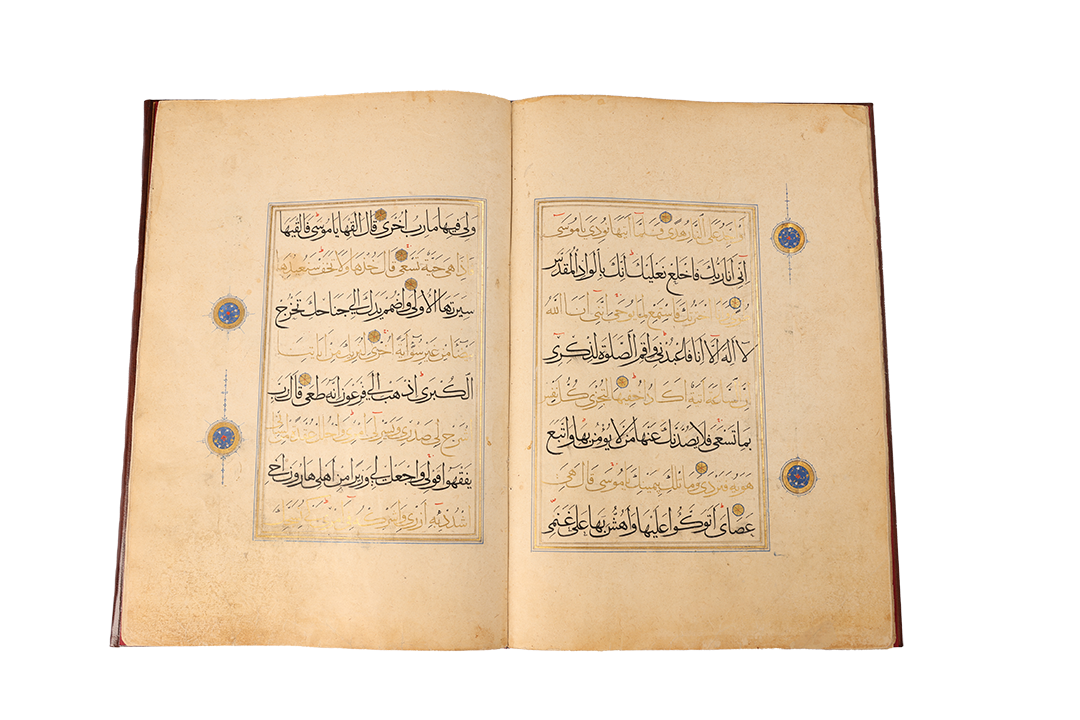 أو أجد على النار هدى فلما أتاها نودي يا موسى
إني أنا ربك فاخلع نعليك إنك بالواد المقدس
طوى وأنا اخترتك فاستمع لما يوحى إنني أنا الله
لا إله إلا أنا فاعبدني وأقم الصلوة لذكري
إن الساعة آتية أكاد أخفيها لتجزى كل نفس
بما تسعى فلا يصدنك عنها من لا يؤمن بها واتبع
هويه فتردى وما تلك بيمينك يا موسى قال هي
عصاي أتوكؤا عليها وأهش بها على غنمي
ولي فيها مآرب أخرى قال ألقها يا موسى فألقيها
فإذا هي حية تسعى قال خذها ولا تخف سنعيدها
سيرتها الأولى واضمم يدك إلى جناحك تخرج
بيضاء من غير سوء آية أخرى لنريك من آياتنا
الكبرى اذهب إلى فرعون إنه طغى قال رب
اشرح لي صدري ويسر لي أمري واحلل عقدة من لساني
يفقهوا قولي واجعل لي وزيرا من أهلي هارون أخي
اشدد به أزري وأشركه